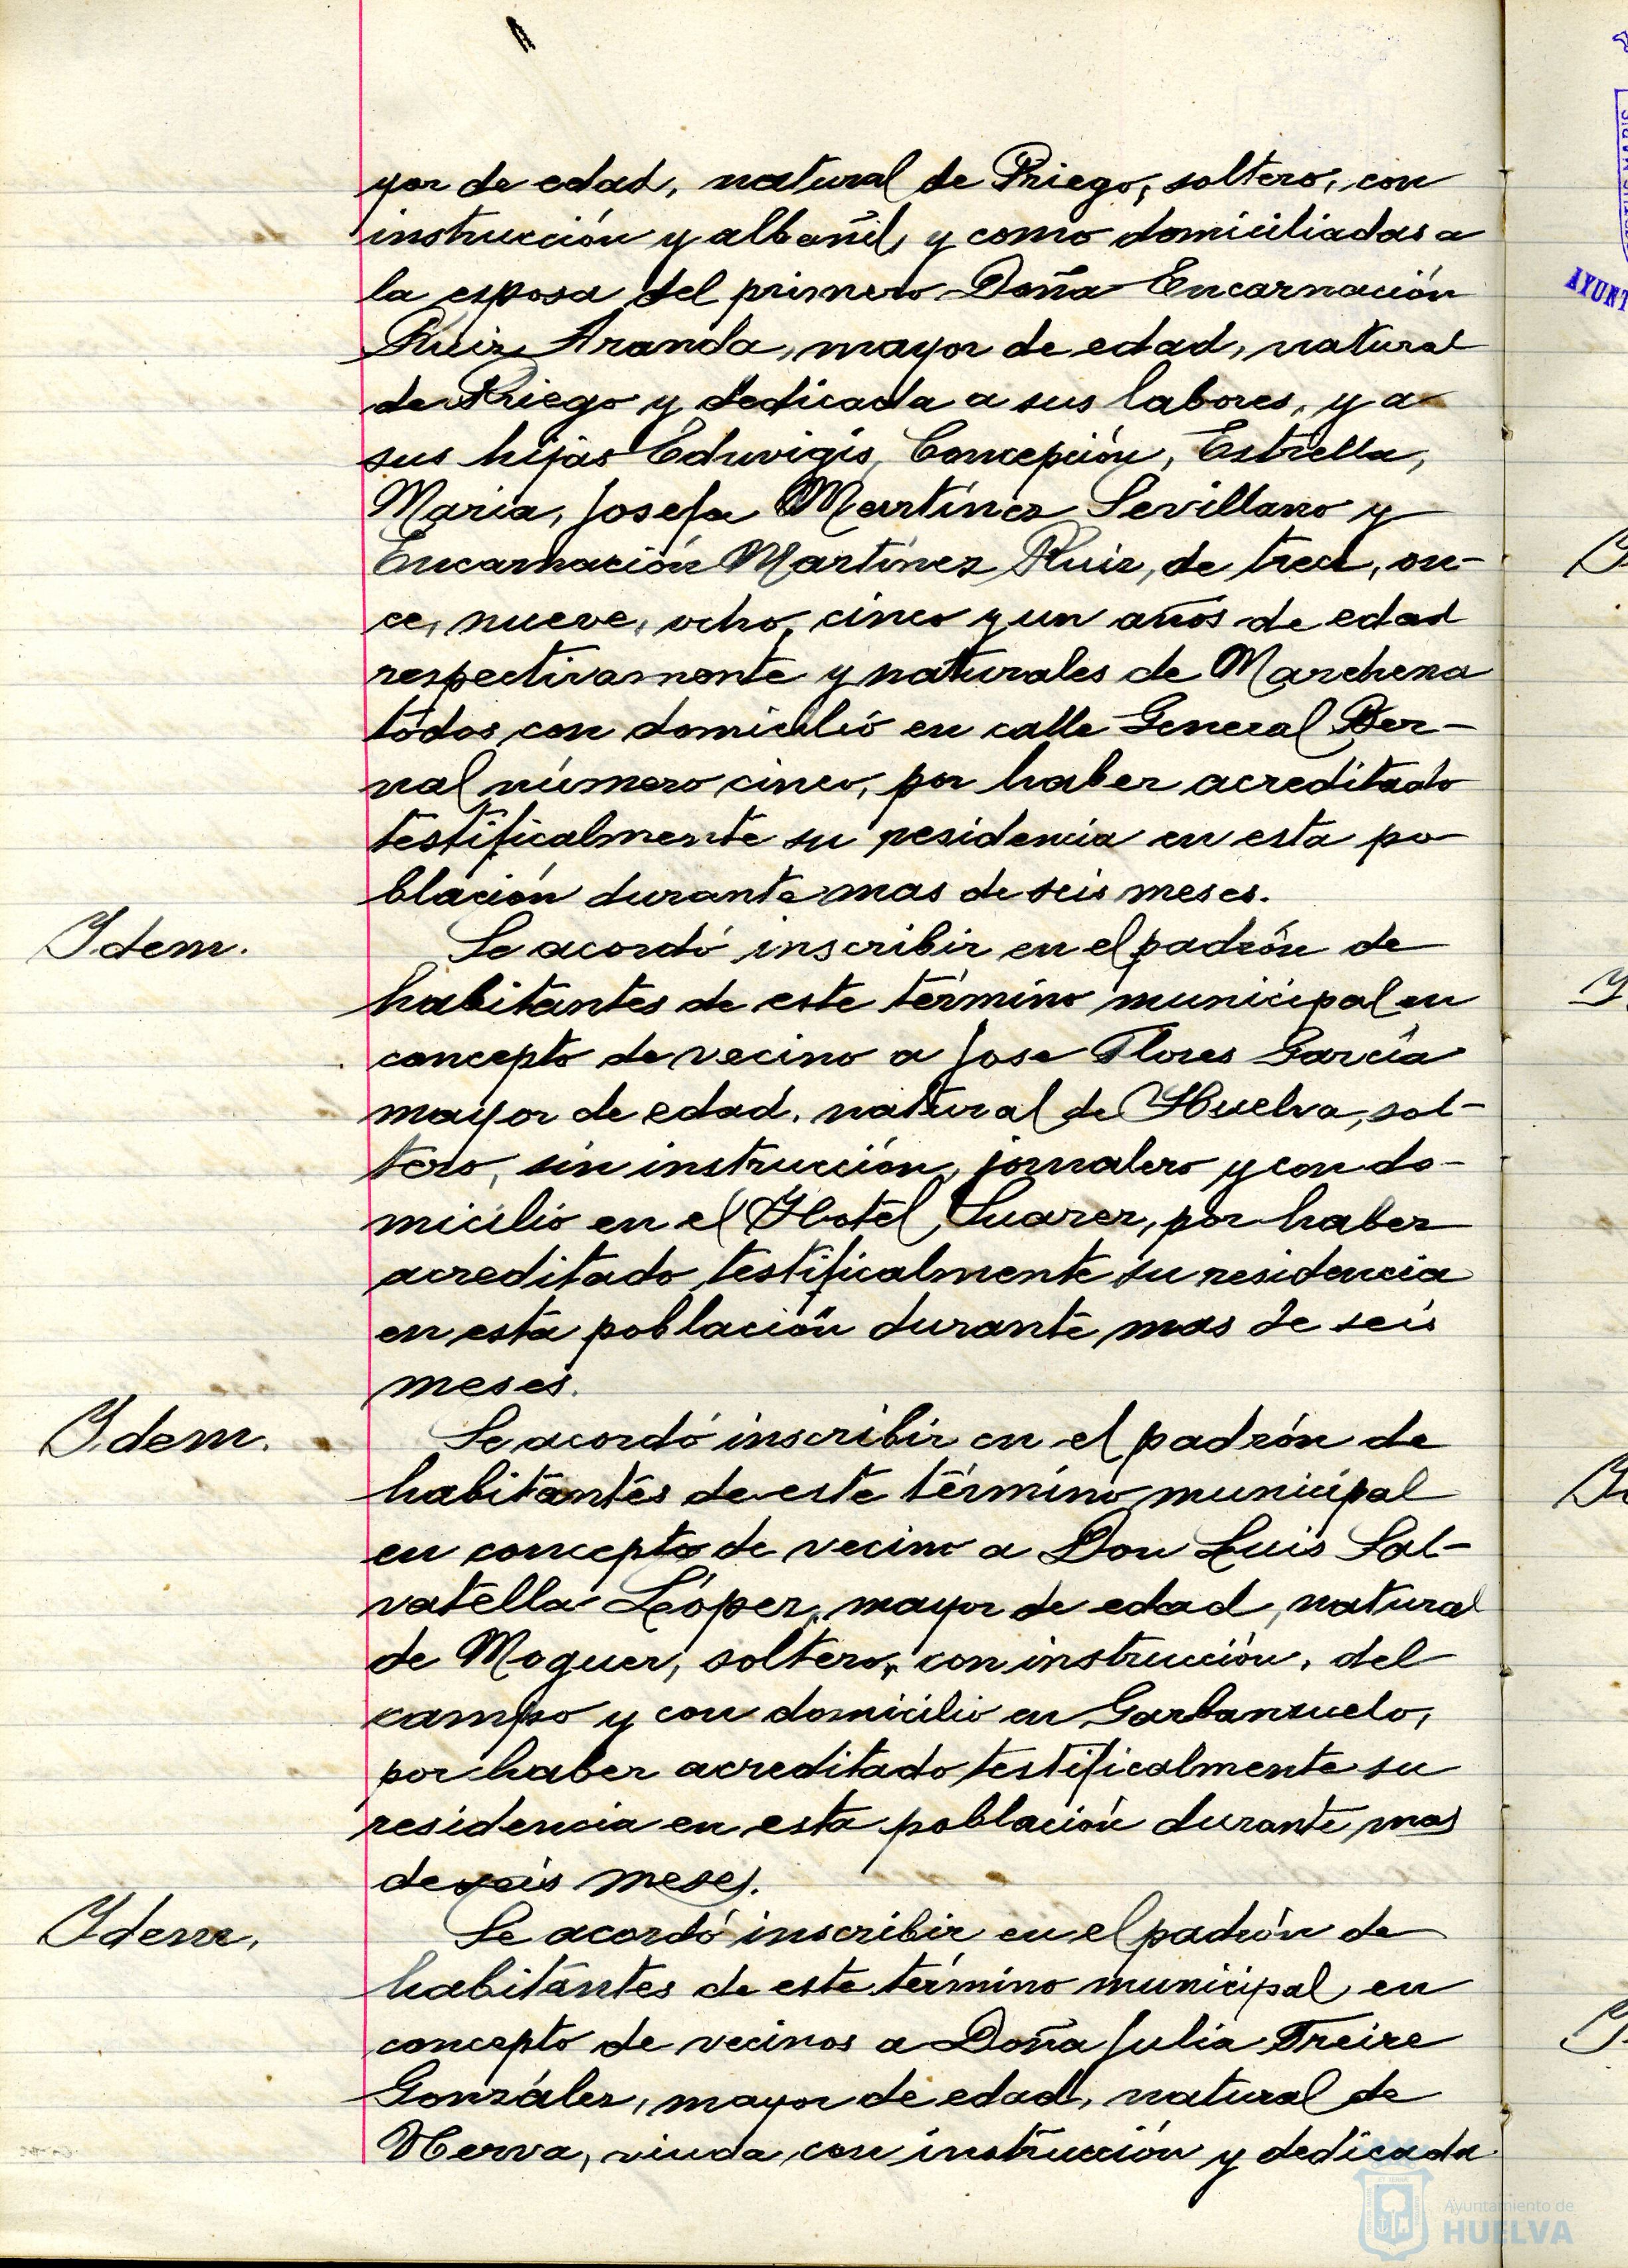 yor de edad, natural de Priego, soltero, con
instrucción y albañil, y como domiciliadas a
la esposa del primero Doña Encarnación
Ruiz Aranda, mayor de edad, natural
de Priego y dedicada a sus labores, y a
sus hijas Eduvigis, Concepción, Estrella,
Maria, Josefa Martínez Sevillano y
Encarnación Martínez Ruiz, de trece, on-
ce, nueve, ocho, cinco y un años de edad
respectivamente y naturales de Marchena
todos con domicilio en calle General Ber-
nal número cinco, por haber acreditado
testificalmente su residencia en esta po
blación durante mas de seis meses.
Idem.
Se acordó inscribir en el padrón de
habitantes de este término municipal en
concepto de vecino a Jose Flores García
mayor de edad, natural de Huelva, sol-
tero, sin instrucción, jornalero y con do-
micilio en el Hotel Suarez, por haber
acreditado testificalmente su residencia
en esta población durante mas de seis
meses.
Idem.
Se acordó inscribir en el padrón de
habitantes de este término municipal
en concepto de vecino a Don Luis Sal-
vatella López, mayor de edad, natural
de Moguer, soltero, con instrucción, del
campo y con domicilio en Garbanzuelo,
por haber acreditado testificalmente su
residencia en esta población durante mas
de seis meses.
Idem.
Se acordó inscribir en el padrón de
habitantes de este término municipal en
concepto de vecinos a Doña Julia Freire
González, mayor de edad, natural de
Nerva, viuda con instrucción y dedicada
AYUNT
Ayuntamiento de
HUELVA